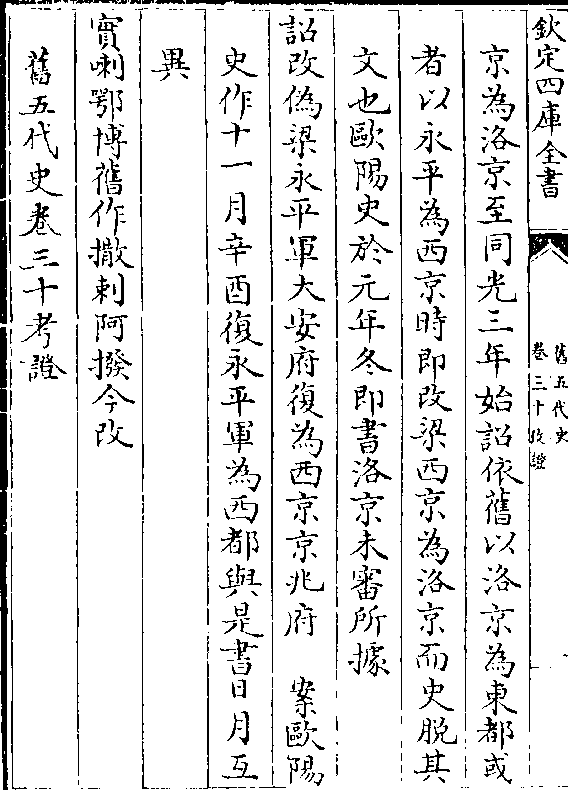 欽定四庫全書
舊五代史
卷三十攷證
京為洛京至同光三年始詔依舊以洛京為東都或
者以永平為西京時即改梁西京為洛京而史脫其
文也歐陽史於元年冬即書洛京未審所據
詔改偽梁永平軍大安府復為西京京兆府　案歐陽
史作十一月辛酉復永平軍為西都與是書日月互
異
實喇鄂博舊作撒剌阿撥今改
舊五代史卷三十考證